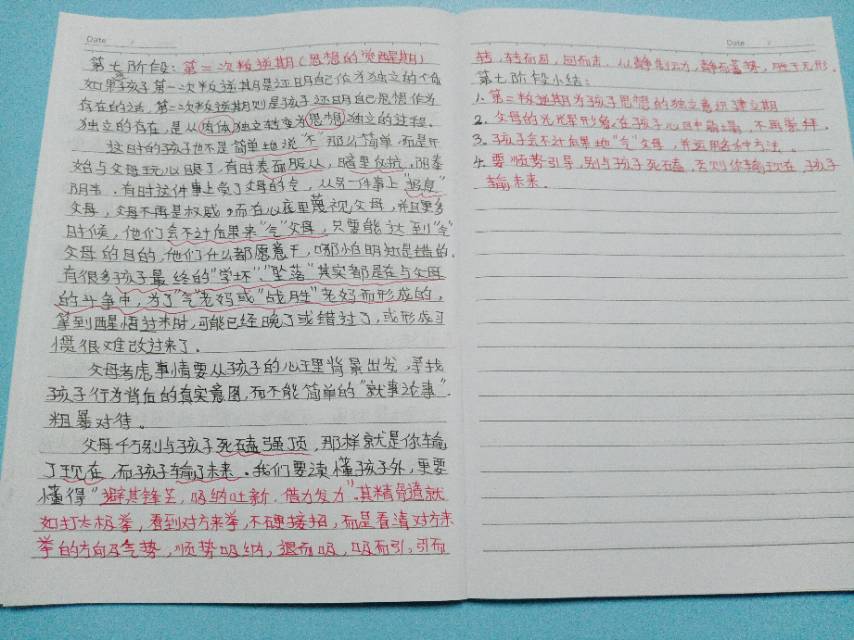 Date
第七阶段：第二次叛逆期（思想的觉醒期）
如果孩子第一次叛逆期是证明自己作为独立的个体
存在的话，第二次叛逆期则是孩子证明自己思想作为
独立的存在，是从肉体独立转变为思想独立的过程。
这时的孩子他不是简单地说“不”那么简单，而是开
始与父母玩心眼了，有时表面服从，暗里反抗，阴奉
阳违。有时这件事上受了父母的令，从另一件事上“报复”
父母，父母不再是权威，而在心底里蔑视父母，并且更多
时候，他们会不计后果来“气”父母，只要能达到“气”
父母的目的，他们什么都愿意干，哪怕明知是错的。
有很多孩子最终的“学坏”、“坠落”其实都是在与父母
的斗争中，为了“气”老妈或“战胜”老妈而形成的，
等到醒悟过来时，可能已经晚了或错过了，或形成习
惯很难改过来了。
父母考虑事情要从孩子的心理背景出发，寻找
孩子行为背后的真实意图，而不能简单的“就事论事”，
粗暴对待。
父母千万别与孩子死磕强顶，那样就是你输
了现在，而孩子输了未来。我们要读懂孩子外，更要
懂得“避其锋芒，吸纳吐新，借力发力”。其精骨道就
如打太极拳，看到对方来拳，不硬接招，而是看清对方来
拳的方向及气势，顺势吸纳，退而吸，吸而引，引而
Date
转，转而回，回而击，以静制动，静而蓄势，胜于无形。
第七阶段小结：
1. 第二叛逆期为孩子思想的独立意识建立期
2. 父母的光光辉形象在孩子心目中崩塌，不再崇拜。
3. 孩子会不计后果地“气”父母，并运用各种方法。
4. 要顺势引导，别与孩子死磕，否则你输现在，孩子
输未来。